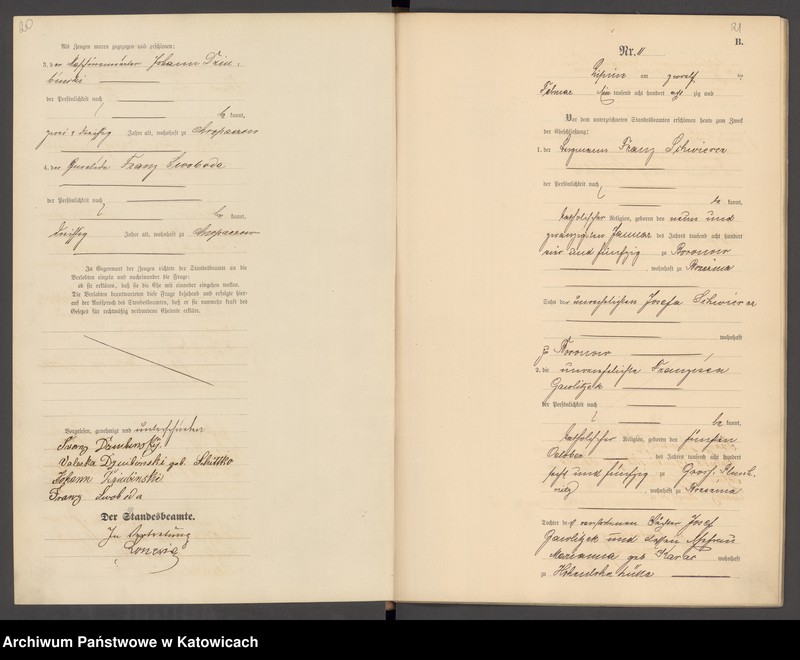 20
Als Zeugen waren zugezogen und erschienen:
3. der Johann Dziu-
binski
der Persönlichkeit nach
be kannt,
zwei & dreißig Jahre alt, wohnhaft zu Chropaczow
4. der Franz Swoboda
der Persönlichkeit nach
be kannt,
dreißig Jahre alt, wohnhaft zu Chropaczow
In Gegenwart der Zeugen richtete der Standesbeamte an die
Verlobten einzeln und nacheinander die Frage:
ob sie erklären, daß sie die Ehe mit einander eingehen wollen.
Die Verlobten beantworteten diese Frage bejahend und erfolgte hier-
auf der Ausspruch des Standesbeamten, daß er sie nunmehr kraft des
Gesetzes für rechtmäßig verbundene Eheleute erkläre.
Vorgelesen, genehmigt und unterschrieben
Franz
Valeska geb.
Johann
Franz Swoboda
Der Standesbeamte.
In Vertretung
21
B.
Nr. 11
Lipine am zwölf ten
Februar Ein tausend acht hundert acht zig und
Vor dem unterzeichneten Standesbeamten erschienen heute zum Zweck
der Eheschließung:
1. der Bergmann Franz Schwierer
der Persönlichkeit nach
be kannt,
katholischer Religion, geboren den neun und
zwanzigsten Januar des Jahres tausend acht hundert
vier und fünfzig zu Boronow
, wohnhaft zu
Sohn der unverehelichten Josefa Schwierer
wohnhaft
zu Boronow
2. die unverehelichte Franziska
Gawlitzek
der Persönlichkeit nach
be kannt,
katholischer Religion, geboren den fünften
October des Jahres tausend acht hundert
sechs und fünfzig zu
, wohnhaft zu
Tochter des verstorbenen Josef
Gawlitzek und dessen Ehefrau
Marianna geb. wohnhaft
zu Hohenlohe Hütte
Archiwum Państwowe w Katowicach